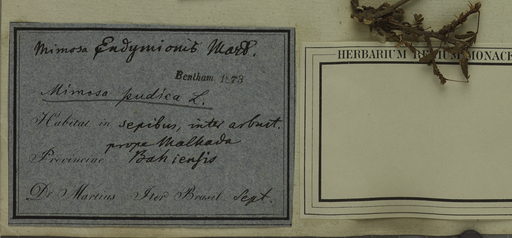 Mimosa Endymionis Mart.
Bentham 1873
Mimosa pudica L.
Habitat in sepibus, inter arbust.
prope Malhada
Provinciae Bahiensis
Dr Martius Iter Brasil Sept.
HERBARIUM REGIUM MONACE